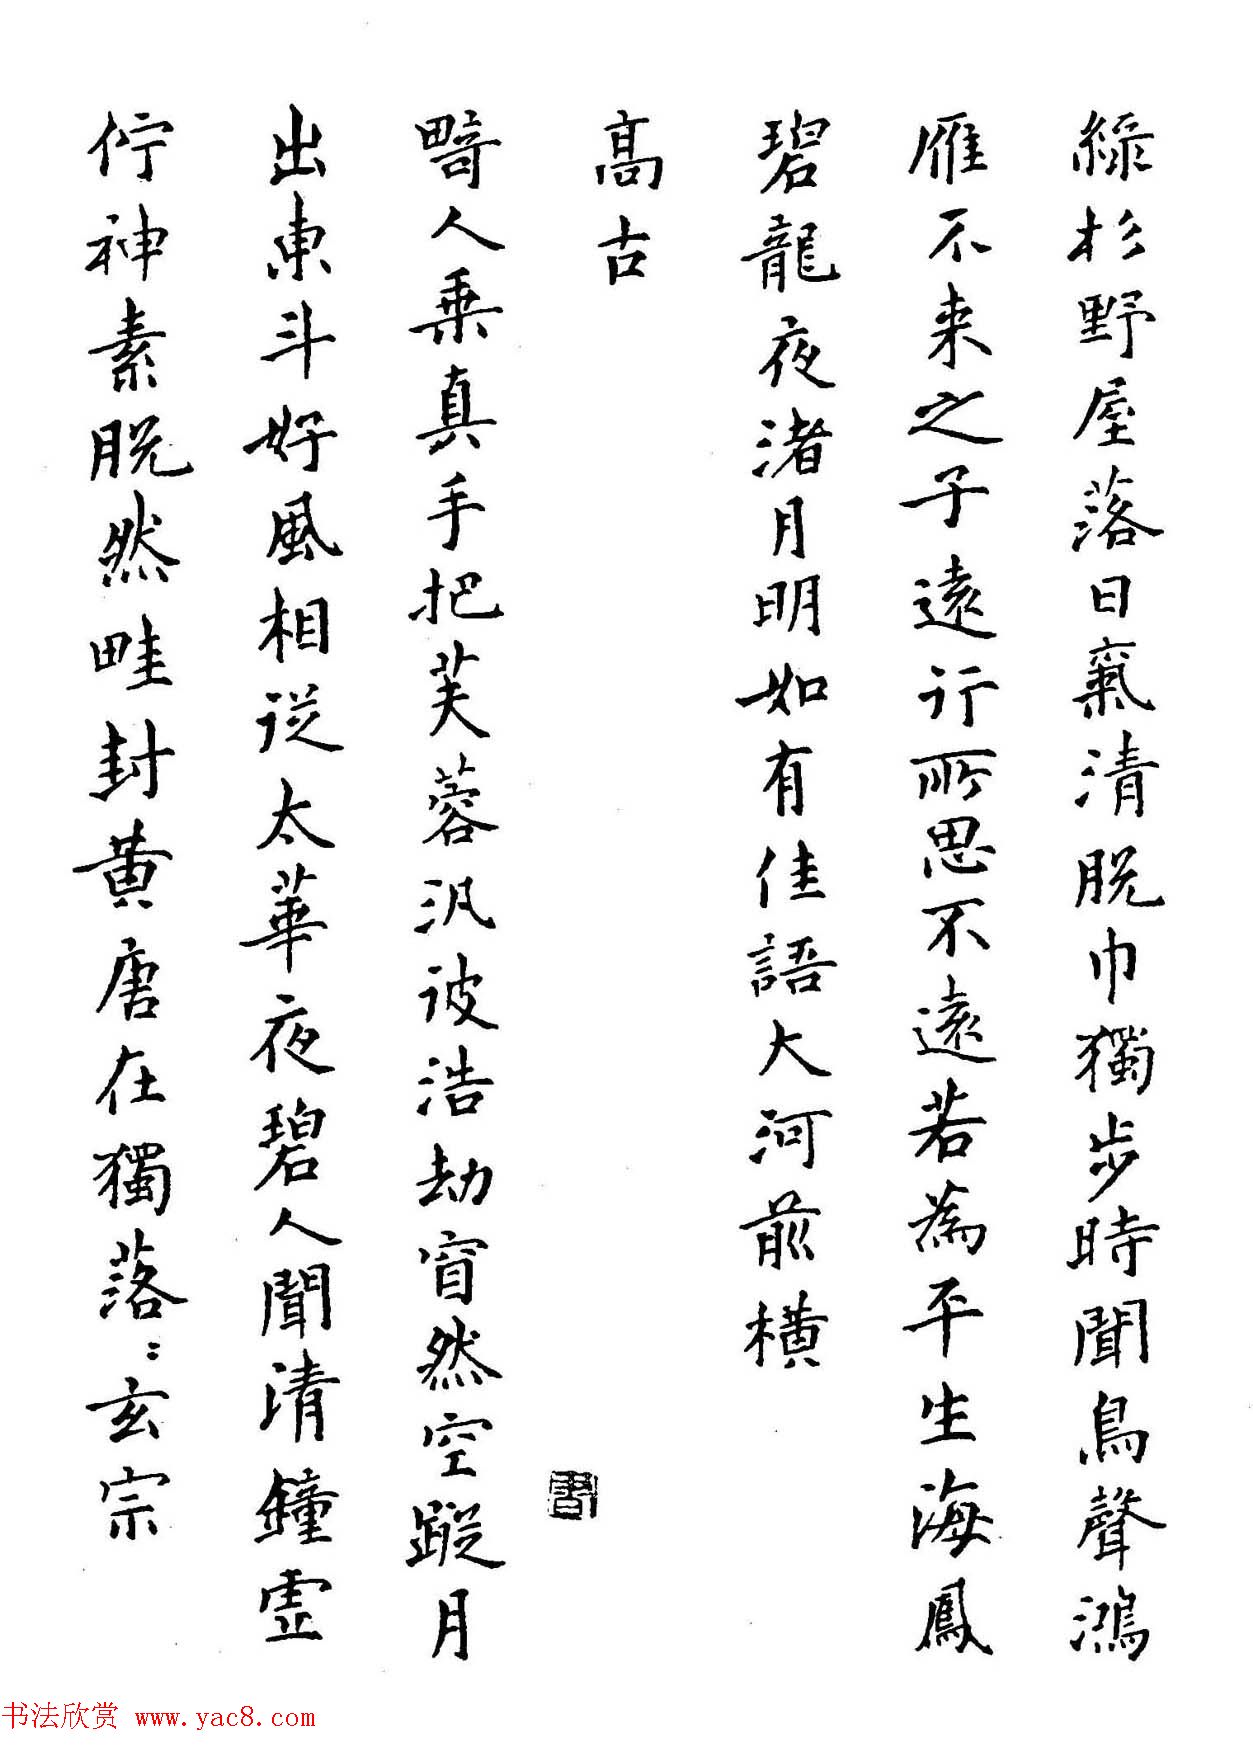 綠杉野屋落日氣清脫巾獨步時聞鳥聲鴻
雁不来之子遠行所思不遠若為平生海鳳
碧龍夜渚月明如有佳語大河前橫
高古
畸人乘真手把芙蓉汎彼浩劫窅然空蹤月
出東斗好風相從太華夜碧人聞清鐘虛
佇神素脫然畦封黃唐在獨落〻玄宗
書
书法欣赏 www.yac8.com